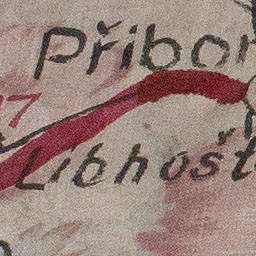 Příbor
17
Libhošť